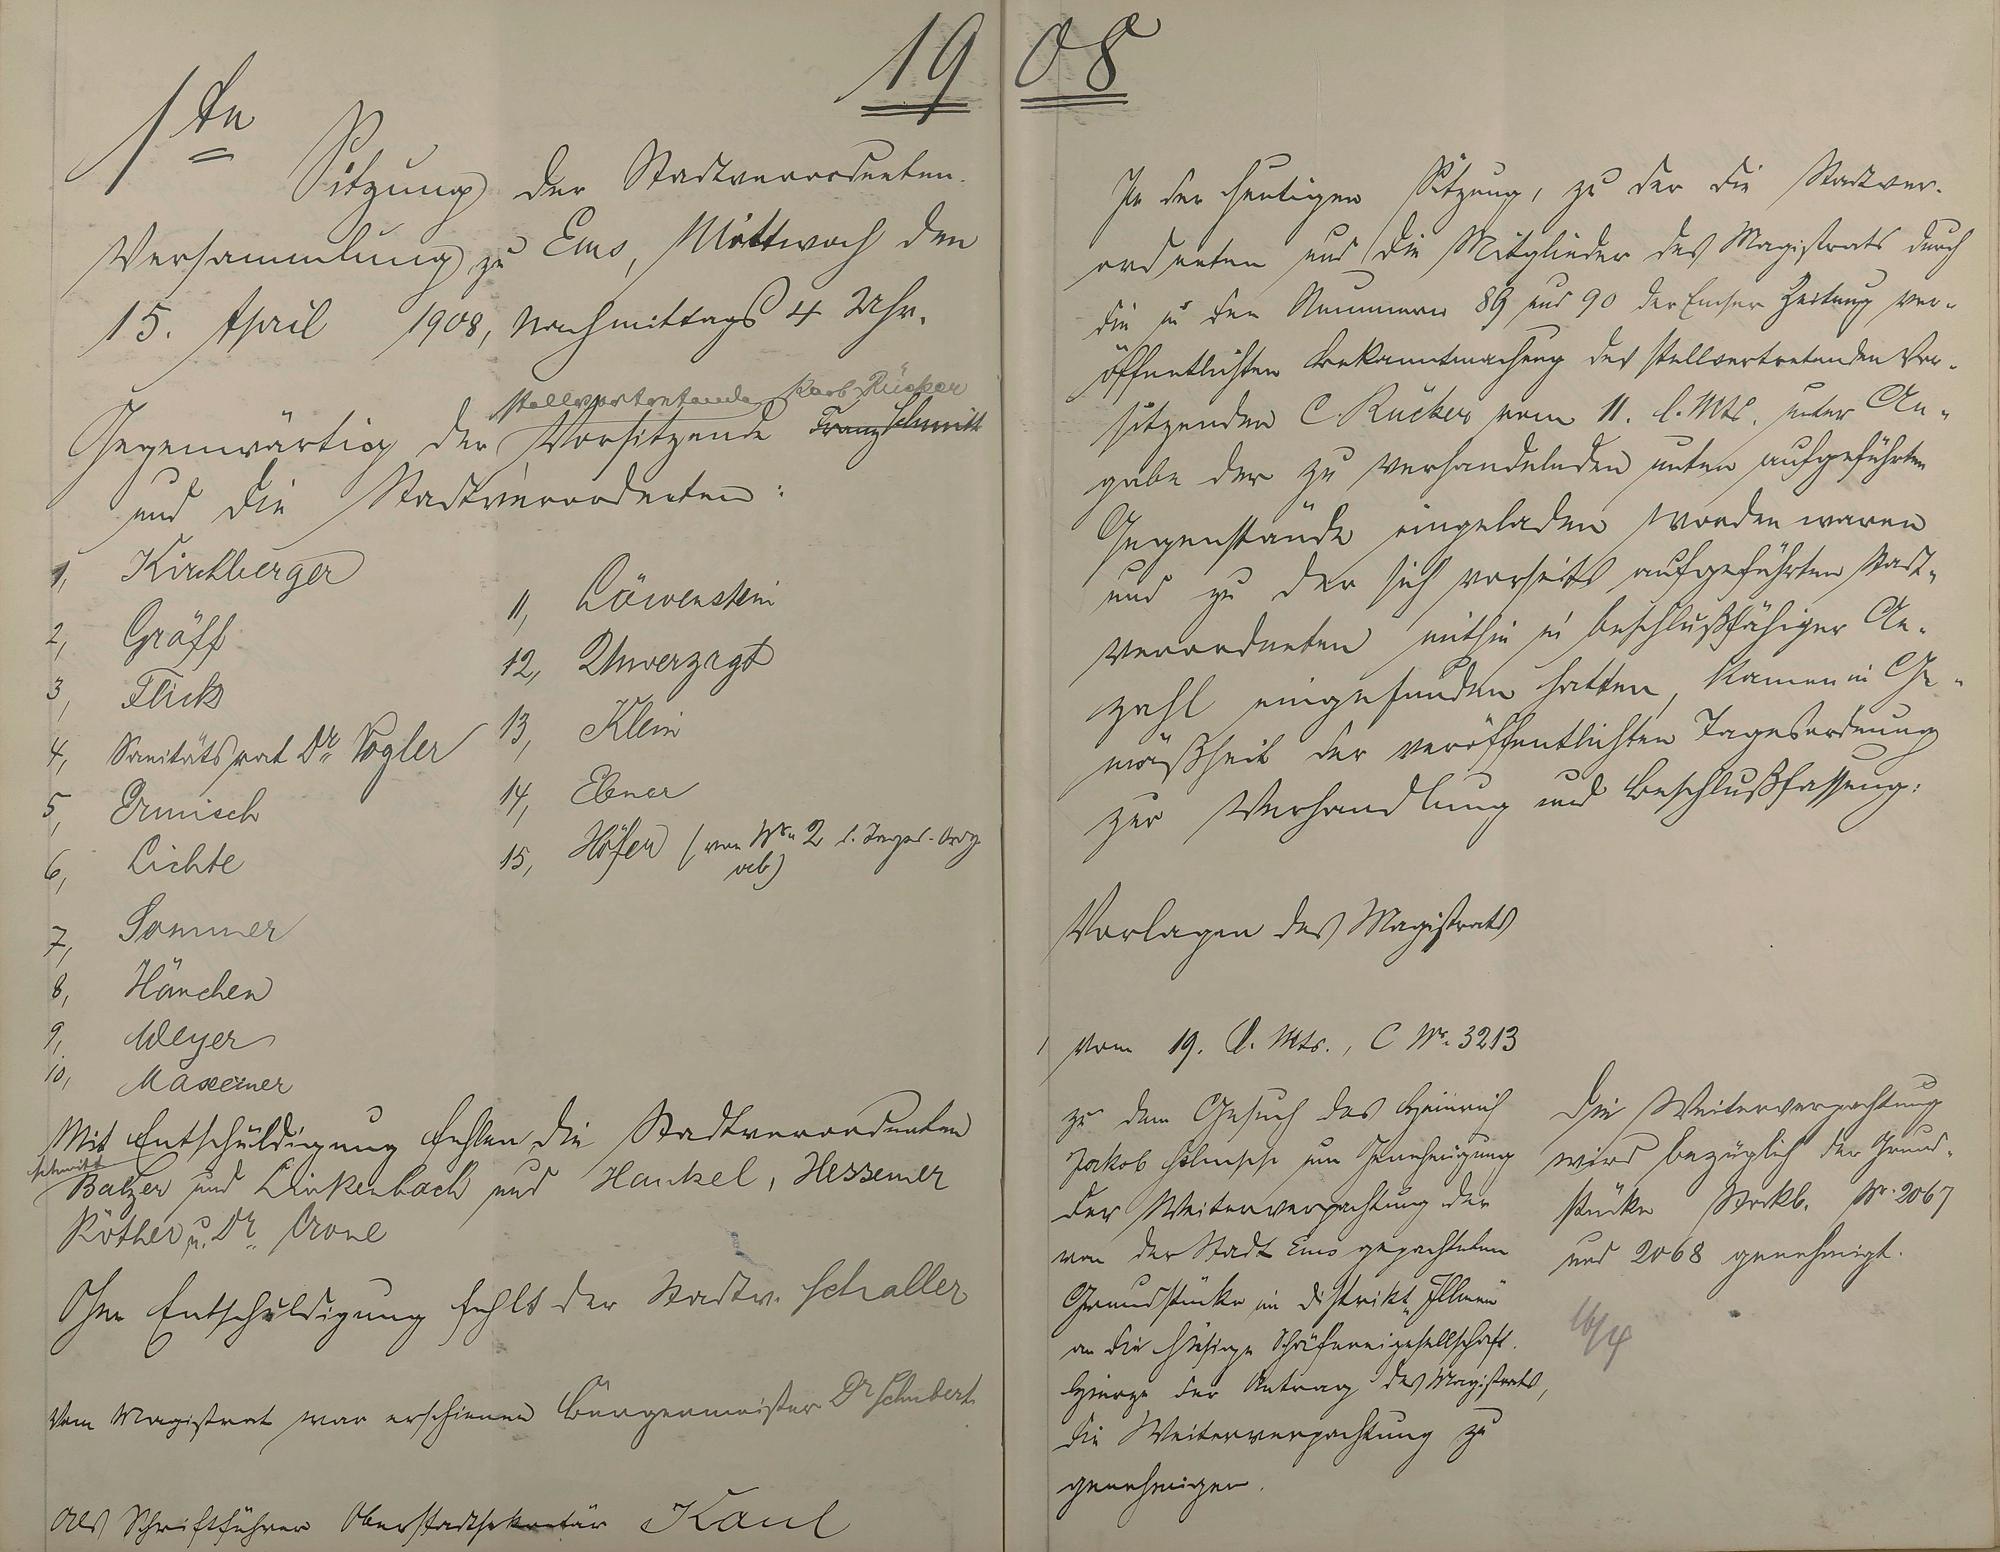 1908
1te
Sitzung der Stadtverordneten-
Versammlung zu Ems, Mittwoch den
15. April 1908, Nachmittags 4 Uhr.
stellvertretende Karl Rücker
Gegenwärtig der Vorsitzende Franz Schmitt
und die Stadtverordneten:
1, Kirchberger
2, Gräff
3, Flick
4, Sanitätsrat Dr. Vogler
5, Ermisch
6, Lichte
7, Sommer
8, Hänchen
9, Meyer
10, Maxeiner
11, Löwenstein
12, Unverzagt
13, Klein
14, Ebner
15, Höfer (von Nr. 2 d. Tages-Ordg.
ab)
Mit Entschuldigung fehlen die Stadtverordneten
Schmitt
Balzer und Linkenbach und Hankel, Hessemer
Röther u. Dr. Crone
Ohne Entschuldigung fehlt der Stadtv. Schaller
Vom Magistrat war erschienen Bürgermeister Dr Schubert.
Als Schriftführer Oberstadtsekretär Kaul
In der heutigen Sitzung, zu der die Stadtver-
ordneten und die Mitglieder des Magistrats durch
die in den Nummern 89 und 90 der Emser Zeitung ver-
öffentlichten Bekanntmachung des stellvertretenden Vor-
sitzenden C. Rücker vom 11. l. Mts. unter An-
gabe der zu verhandelnden unten aufgeführten
Gegenstände eingeladen worden waren
und zu der sich vorseits aufgeführten Stadt-
verordneten mithin in beschlußfähiger An-
zahl eingefunden hatten, kamen in Ge-
mäßheit der veröffentlichten Tagesordnung
zur Verhandlung und Beschlußfassung:
Vorlagen des Magistrats
1 vom 19. v. Mts., C Nr. 3213
zu dem Gesuch des Heinrich
Jakob um Genehmigung
der Weiterverpachtung der
von der Stadt Ems gepachteten
Grundstücke im Distrikt
an die hiesige Schäfereigesellschaft.
Hierzu der Antrag des Magistrats,
die Weiterverpachtung zu
genehmigen.
Die Weiterverpachtung
wird bezüglich der Grund-
stücke Stockb. Nr. 2067
und 2068 genehmigt.
16/4